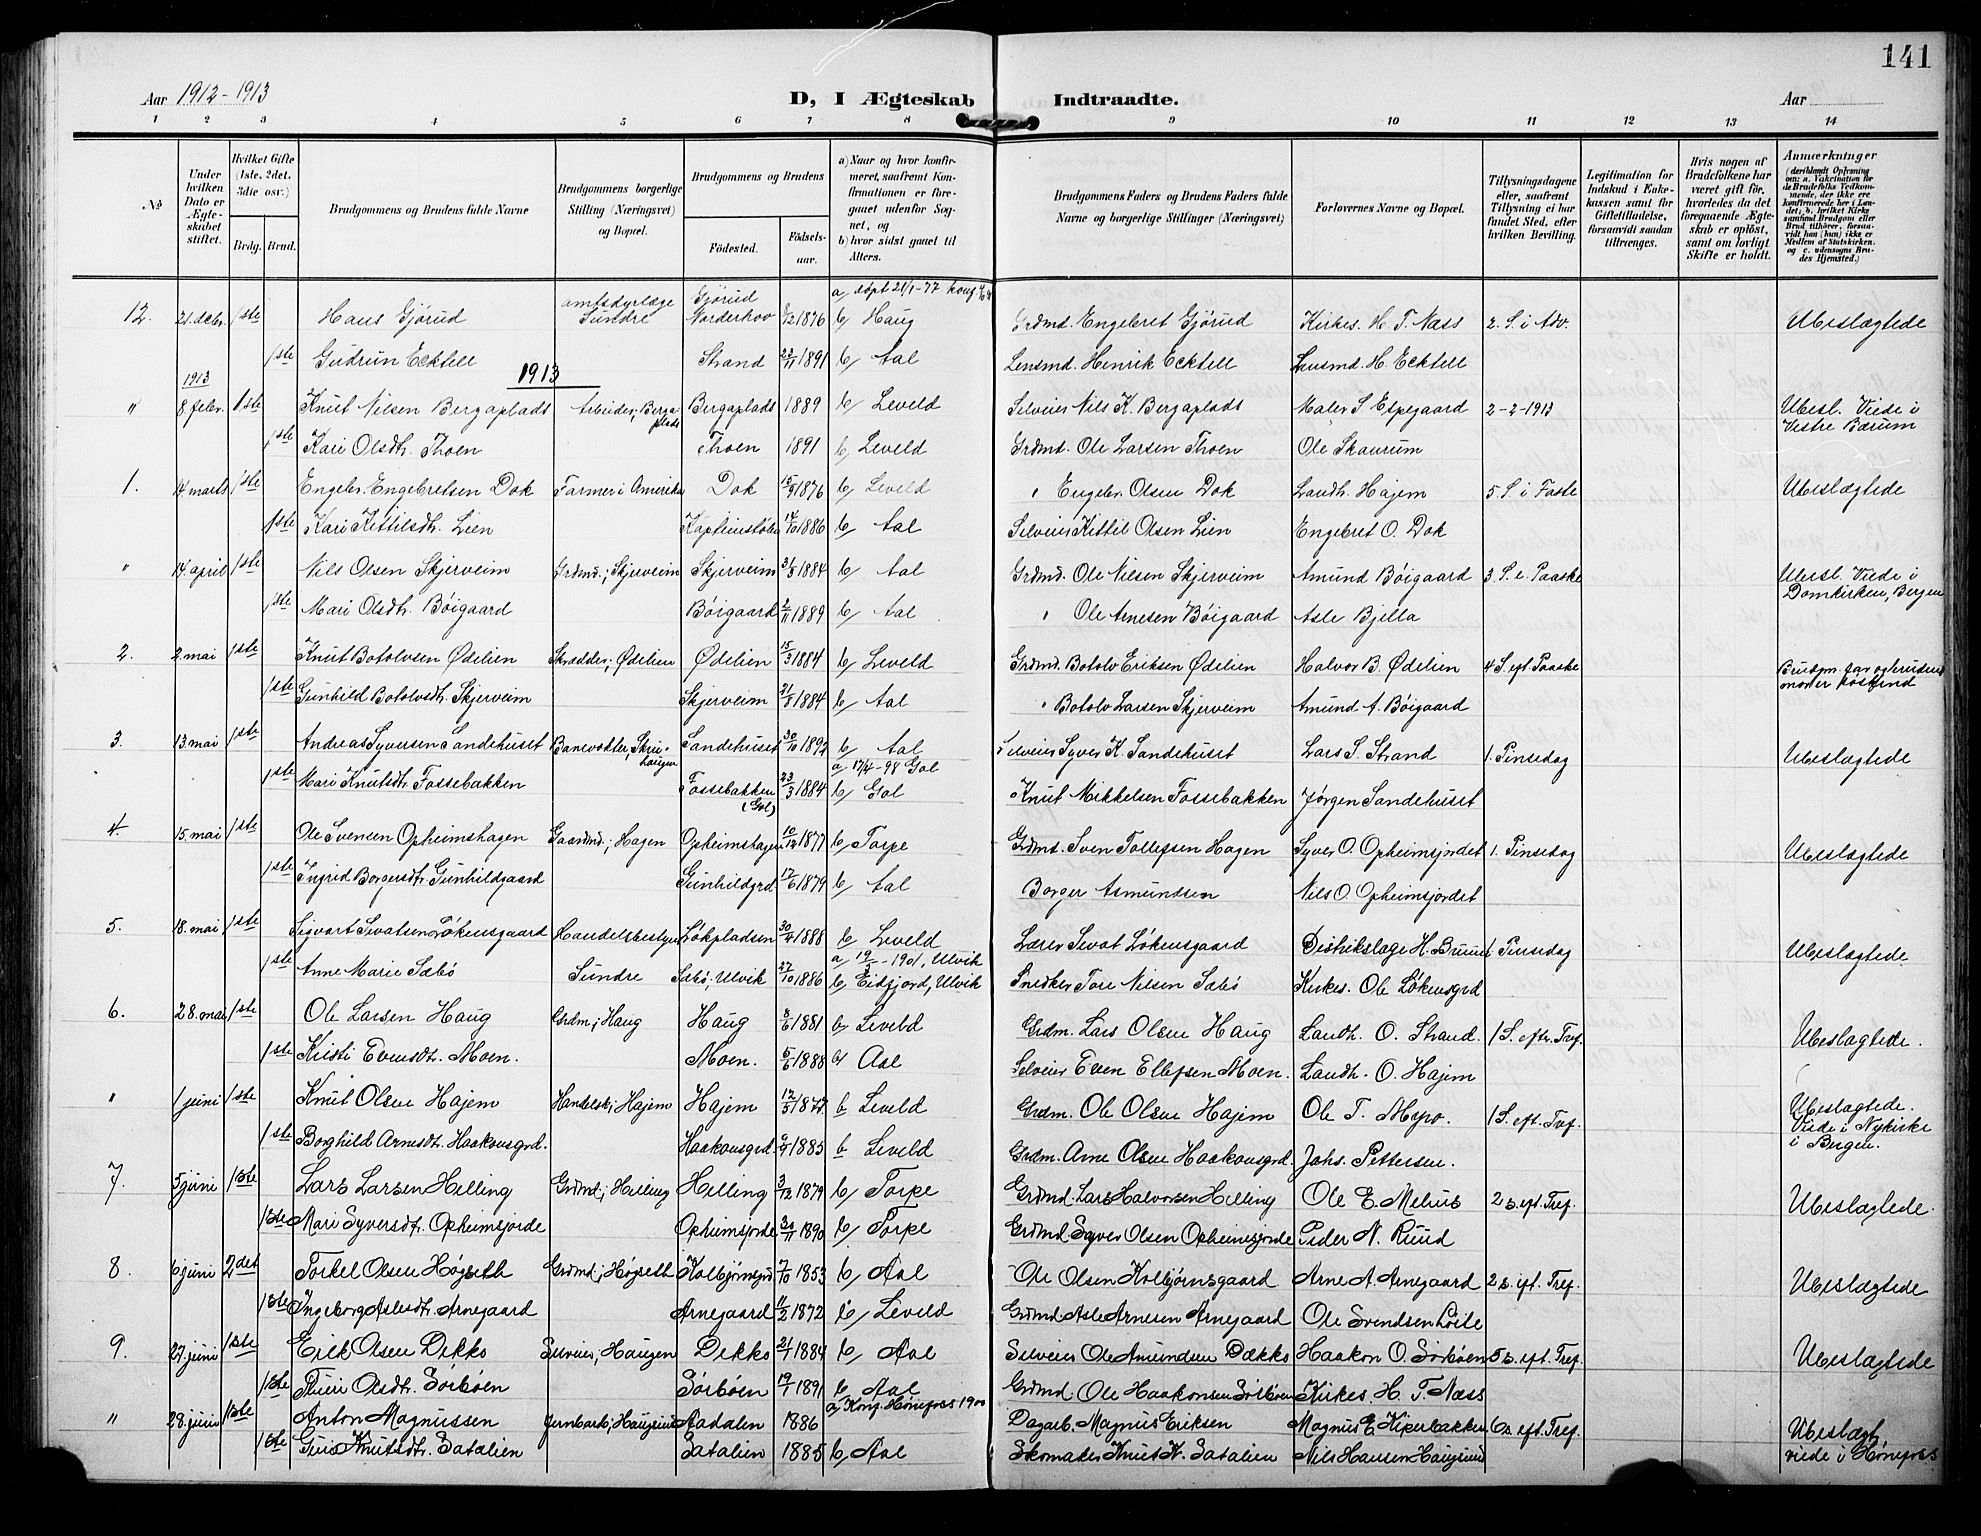 141
Aar 1912-1913
D, I Ægteskab Indtraadte.
Aar
1 2 3 4 5 6 7 8 9 10 11 12 13 14
№
Under hvilken Dato er Ægteskabet stiftet.
Hvilket Gifte (1ste, 2det, 3die osv.)
Brdg. Brud.
Brudgommens og Brudens fulde Navne
Brudgommens borgerlige Stilling (Næringsvei) og Bopæl.
Brudgommens og Brudens
Fødested.
Fødselsaar.
a) Naar og hvor konfirmeret, saafremt Konfirmationen er foregaaet udenfor Sognet, og
b) hvor sidst gaaet til Alters.
Brudgommens Faders og Brudens Faders fulde Navne og borgerlige Stillinger (Næringsvei)
Forlovernes Navne og Bopæl.
Tillysningsdagene eller, saafremt Tillysning ei har fundet Sted, efter hvilken Bevilling.
Legitimation for Indskud i Enkekassen samt for Giftetilladelse, forsaavidt saadan tiltrænges.
Hvis nogen af Brudefolkene har været gift før, hvorledes da det foregaaende Ægteskab er opløst, samt om lovligt Skifte er holdt.
Anmærkninger
(deriblandt Oplysning om: a. Vakcination for de Brudefolks Vedkommende, der ikke ere konfirmerede her i Landet; b. hvilket Kirkesamfund Brudgom eller Brud tilhører, forsaavidt han (hun) ikke er Medlem af Statskirken, og c. udensogns Brudes Hjemsted.)
12. 21. debr. 1ste Hans Gjørud amtsdyrlæge Sundre Gjørud Norderhov /12 1876 a/ døpt 21/1-77 b/ Haug Grdmd. Engebret Gjørud Kirkes. H. T. Næss 2. S. i Adv. Ubeslægtede
1ste Gudrun Ecktell Strand 22/11 1891 b/ Aal Lensmd. Henrik Ecktell Lensmd. H. Ecktell
1913 1913
" 8 febr. 1ste Knut Nilsen Bergaplads Arbeider, Bergaplads Bergaplads 1889 b/ Leveld Selveier Nils K. Bergaplads Maler S. Espegaard 2-2-1913 Ubesl. Viede i Vestre Bærum
1ste Kari Olsdtr. Thoen Thoen 1891 b/ Leveld Grdmd. Ole Larsen Thoen Ole Skaurum
1. 14 marts 1ste Engebr. Engebretsen Dok Farmer i Amerika Dok 1876 b/ Leveld " Engebr. Olsen Dok Landh. Hajem 5. S. i Faste Ubeslægtede
1ste Kari Kittilsdtr. Lien 14/10 1886 b/ Aal Selveier Kittil Olsen Lien Engebret O. Dok
" 14. april 1ste Nils Olsen Skjerveim Grdmd.; Skjerveim Skjerveim 31/3 1884 b/ Aal Grdmd. Ole Nilsen Skjerveim Amund Bøigaard 3. S. e. Paaske Ubesl. Viede i Domkirken, Bergen
1ste Mari Olsdtr. Bøigaard Bøigaard 2/11 1889 b/ Aal " Ole Arnesen Bøigaard Asle Bjella
2. 2. mai 1ste Knut Botolvsen Ødelien Skrædder; Ødelien Ødelien 15/3 1884 b/ Leveld Grdmd. Botolv Eriksen Ødelien Halvor B. Ødelien 4 S. eft. Paaske Brudgm. far og brudens moder søskend
1ste Gunhild Botolvsdtr. Skjerveim Skjerveim 21/8 1884 b/ Aal " Botolv Larsen Skjerveim Amund A. Bøigaard
3. 13. mai 1ste Andreas Syversen Sandehuset Banevokter, Sandehuset 30/10 1892 b/ Aal Selveier Syver K. Sandehuset Lars S. Strand 1. Pinsedag Ubeslægtede
1ste Mari Knutsdtr. Fossebakken Fossebakken (Gol) 23/3 1884 a. 17/4-98 Gol b/ Gol " Knut Mikkelsen Fossebakken Jørgen Sandehuset
4. 15. mai 1ste Ole Svensen Opheimshagen Gaardmd; Hagen Opheimshagen 10/12 1877 b/ Torpe Grdmd. Sven Tollefsen Hagen Syver O. Opheimsjordet 1. Pinsedag Ubeslægtede
1ste Ingrid Borgersdtr. Gunhildgaard Gunhildgrd. 17/6 1879 b/ Aal Borger Asmundsen Nils O. Opheimsjordet
5. 18. mai 1ste Sigvart Sevatsen Løkensgaard Handelsbestyrer Løkpladsen 30/4 1888 b/ Leveld Lærer Sevat Løkensgaard Distrikslæge H. Bruun 1 Pinsedag Ubeslægtede.
1ste Anne Marie Sæbø Sundre Sæbø, Ulvik 27/10 1886 a/ 19/ -1901, Ulvik b/ Eidfjord, Ulvik Snedker Tore Nilsen Sæbø Kirkes. Ole Løkensgrd
6. 28. mai 1ste Ole Larsen Haug Grdm; Haug Haug 8/6 1881 b/ Leveld Grdm. Lars Olsen Haug Landh. O. Strand. 1 S. eftr. Tref. Ubeslægtede.
1ste Kristi Evensdt. Moen. Moen. 5/6 1888 b/ Aal Selveier Even Ellefsen Moen. Landh. O. Hajem
" 1 juni 1ste Knut Olsen Hajem Handelsk; Hajem Hajem 12/3 187 b. Leveld Grdm. Ole Olsen Hajem Ole T. Myro. 1 S. eft. Tref. Ubeslægtede. Viede i Nykirke i Bergen.
1ste Borghild Arnesdt. Haakonsgrd. Haakonsgrd. /9 1885 b. Leveld Grdm. Arne Olsen Haakonsgrd. Johs. Pettersen.
7. 5 juni 1ste Lars Larsen Helling Grdmd; Helling Helling 3/12 1879 b/ Torpe Grdmd. Lars Halvorsen Helling Ole E. Mehus 2 s. eft. Tref. Ubeslægtede.
1ste Mari Syversdt. Opheimsjorde Opheimsjorde 30/11 1890 b/ Torpe Grdmd. Syver Olsen Opheimsjorde Peder N. Ruud
8. 6 juni 2det Torkel Olsen Høgseth Grdmd; Høgseth Kolbjørnsgrd 7/10 1853 b/ Aal Ole Olsen Kolbjørnsgaard Arne A. Arnegaard 2 s. eft. Tref. Ubeslægtede
1ste Ingeborg Aslesdt. Arnegaard Arnegaard 11/2 1872 b/ Leveld Grdmd. Asle Arnesen Arnegaard Ole Svendsen Loile
9. 27. juni 1ste Erik Olsen Dekko Selveier, Haugen Dekko 21/1 1884 b/ Aal Selveier Ole Amundsen Dækko Haakon O. Sørbøen 5 s. eft. Tref. Ubeslægtede
1ste Olsdt. Sørbøen Sørbøen 19/1 1891 b. Aal Grdmd. Ole Haakonsen Sørbøen Kirkes. H. T. Næss
" 28. juni 1ste Anton Magnussen Jernbarb; Haugsund Aadalen 1886 a/ Konf. Hønefoss 1900 Dagarb. Magnus Eriksen Magnus E. Kiperbakken 6 s. eft. Tref. Ubeslægt. viede i Hønefoss
1ste Guri Knutsdt. Satalien Satalien 1885 b/ Aal Skomaker Knut K. Satalien Nils Hansen Haugsund